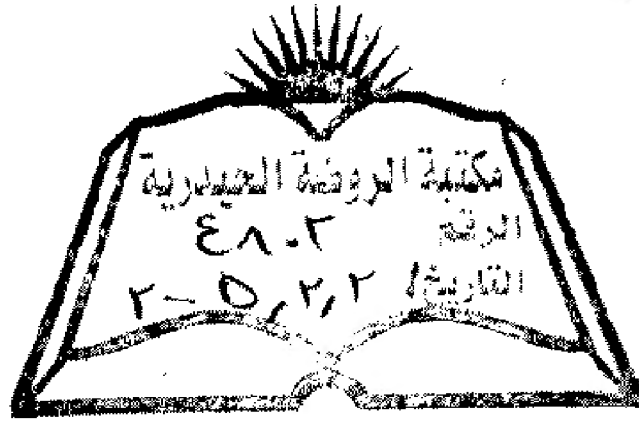 مكتبة الروضة الحيدرية
الرقم ٤٨٠٢
التاريخ /